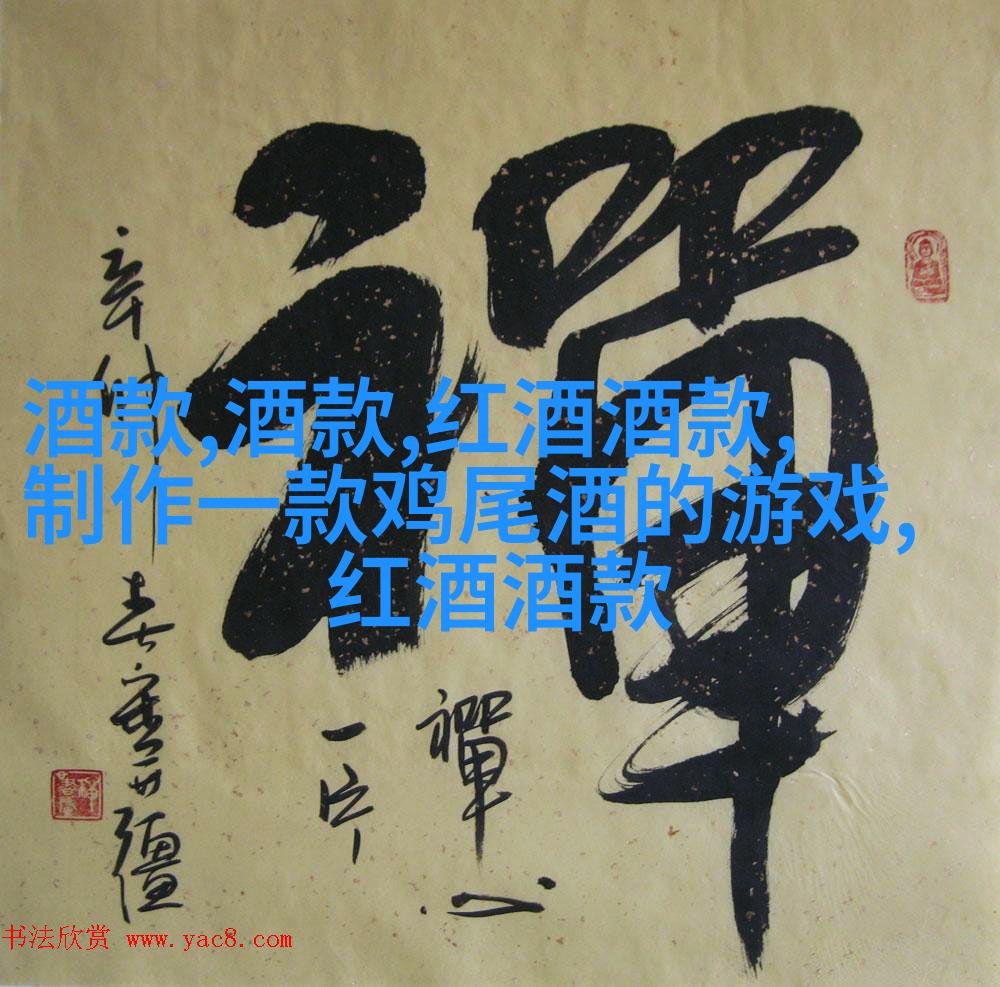 禪
酒款,酒款,红酒酒款,
制作一款鸡尾酒的游戏,
红酒酒款
禪心
一片
辛卯春
书法欣赏 www.yac8.com